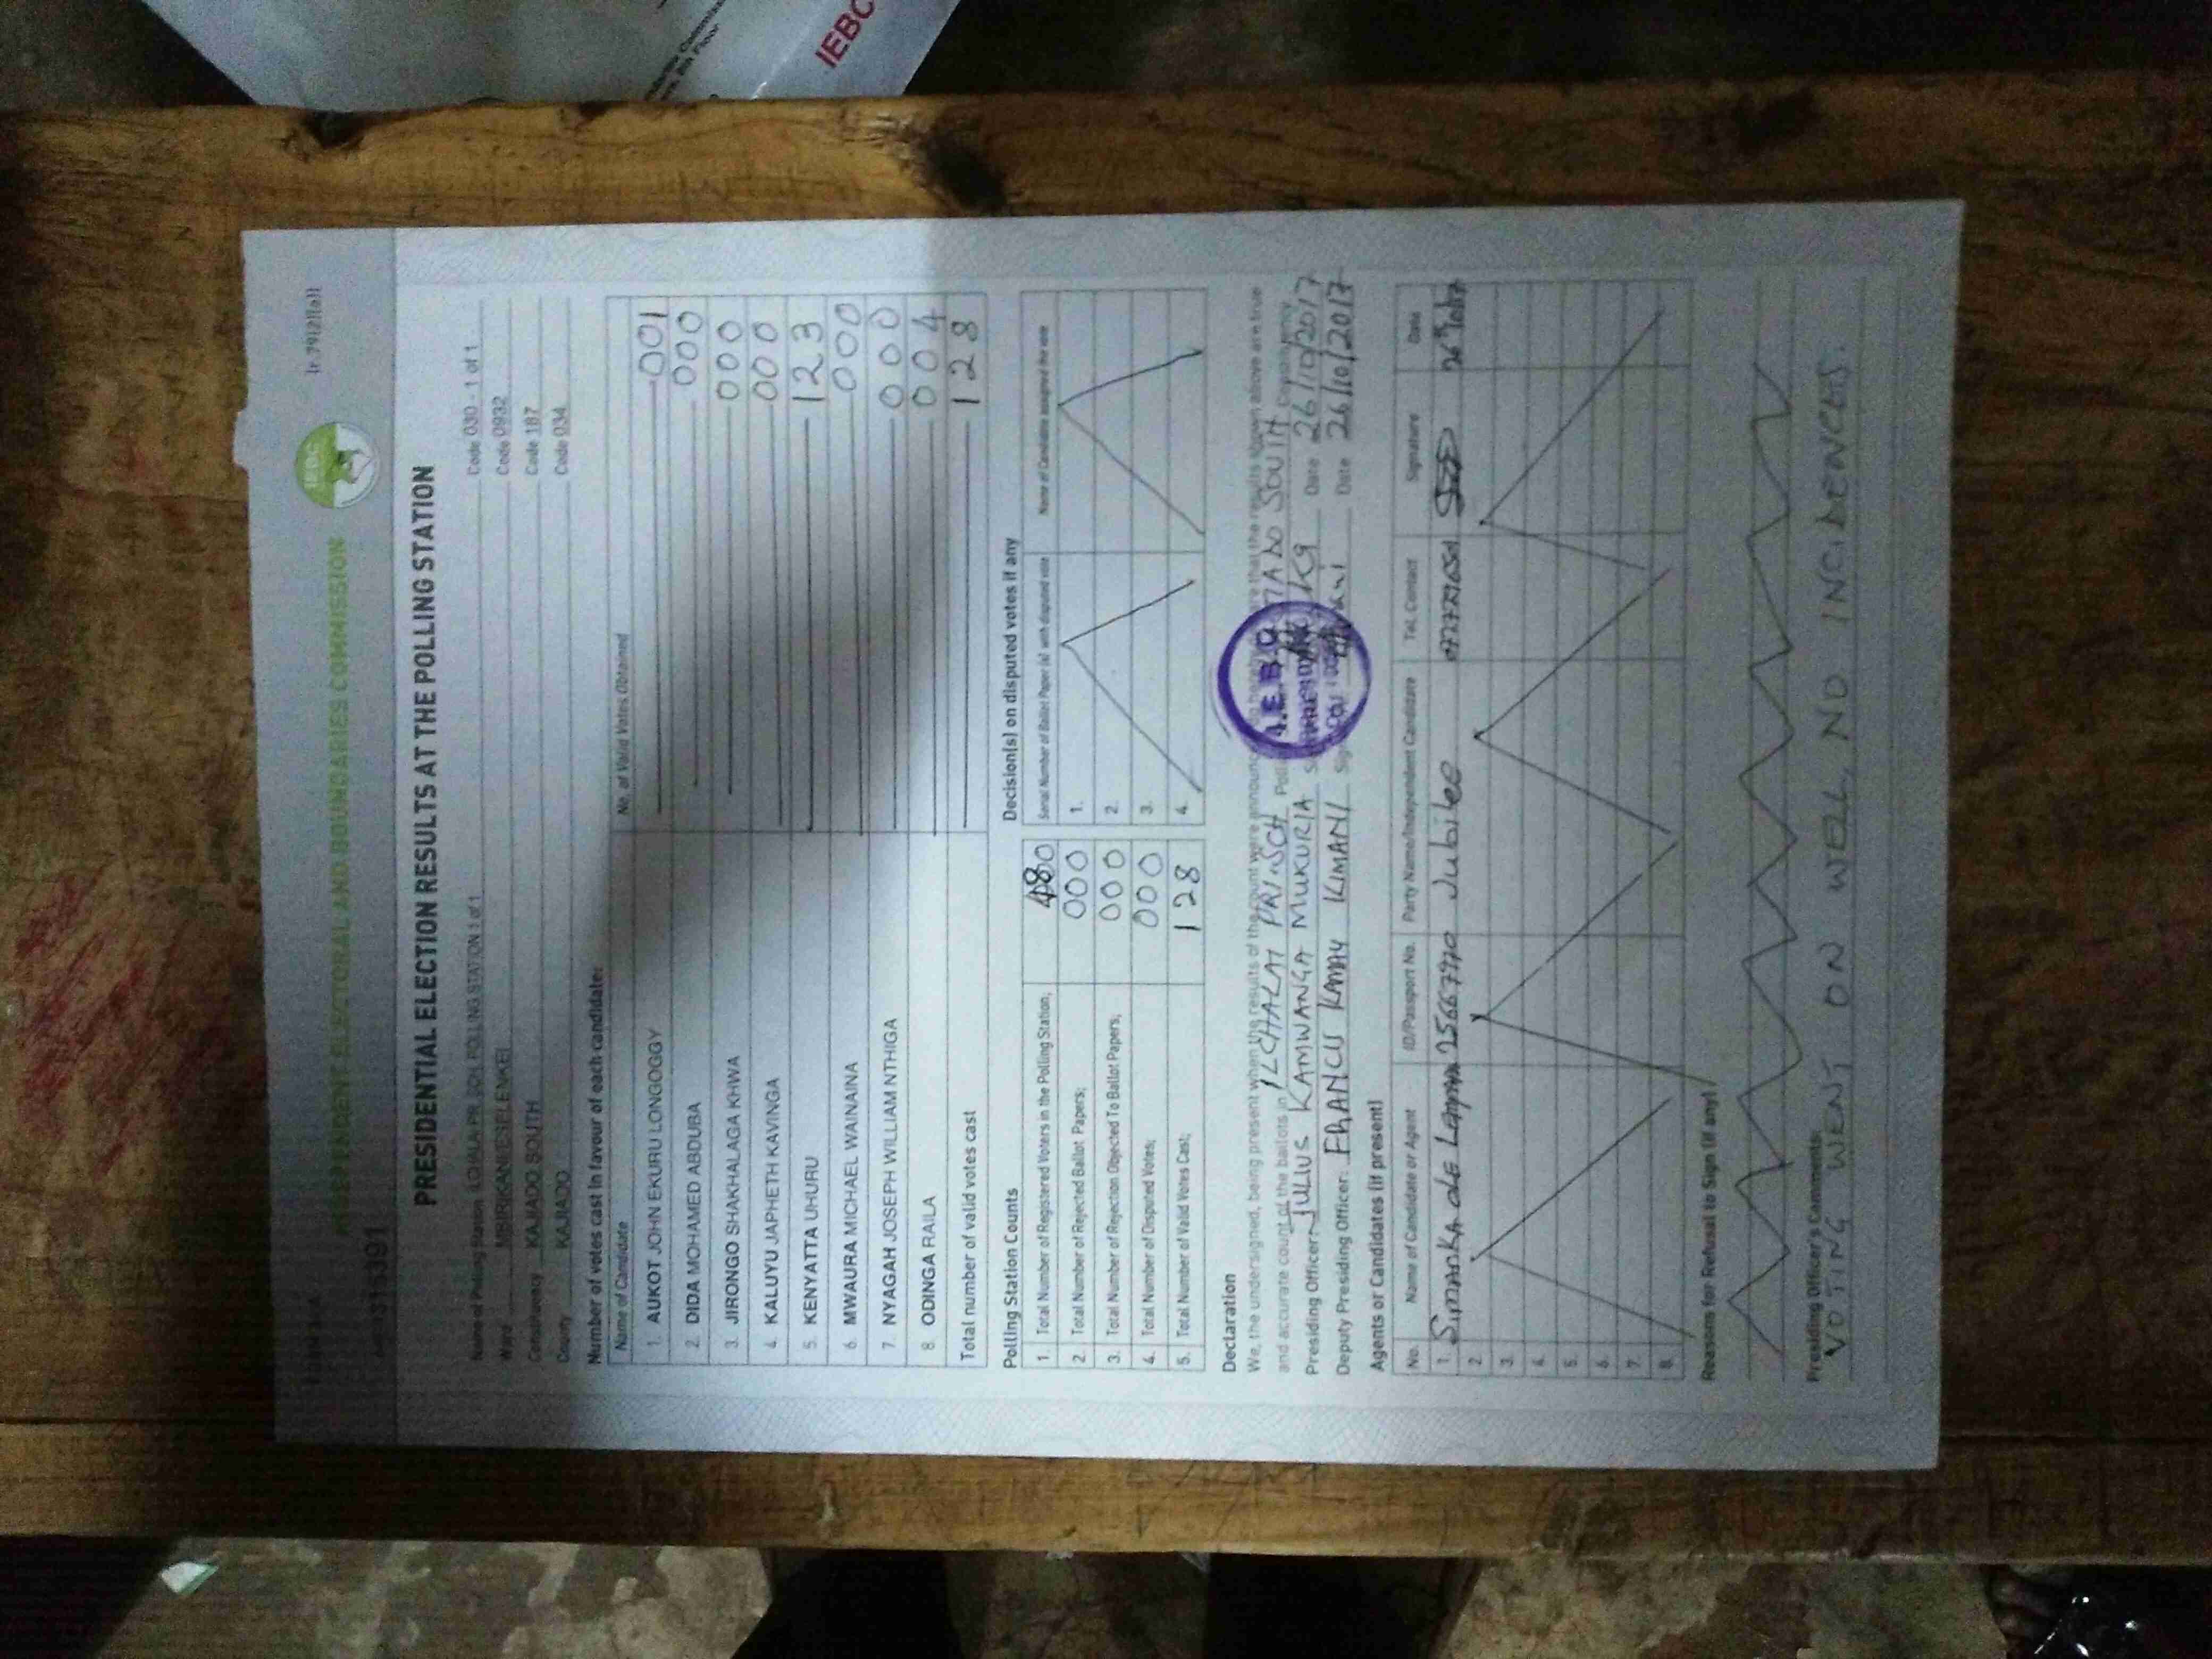 INDEPENDENT ELECTORAL AND BOUNDARIES COMMISSION
IEBC
PRESIDENTIAL ELECTION RESULTS AT THE POLLING STATION
Name of Polling Station ILCHALAI PR. SCH. POLLING STATION 1 of 1 Code 030 - 1 of 1
Ward Code 0932
Constituency KAJIADO SOUTH Code 187
County KAJIADO Code 034
Number of votes cast in favour of each candidate:
Name of Candidate No. of Valid Votes Obtained
1. AUKOT JOHN EKURU LONGOGGY 001
2. DIDA MOHAMED ABDUBA 000
3. JIRONGO SHAKHALAGA KHWA 000
4. KALUYU JAPHETH KAVINGA 000
5. KENYATTA UHURU 123
6. MWAURA MICHAEL WAINAINA 000
7. NYAGAH JOSEPH WILLIAM NTHIGA 000
8. ODINGA RAILA 004
Total number of valid votes cast 128
Polling Station Counts
1. Total Number of Registered Voters in the Polling Station;
2. Total Number of Rejected Ballot Papers; 000
3. Total Number of Rejection Objected To Ballot Papers; 000
4. Total Number of Disputed Votes; 000
5. Total Number of Valid Votes Cast; 128
Decision(s) on disputed votes if any
Serial Number of Ballot Paper (s) with disputed vote Name of Candidate assigned the vote
1.
2.
3.
4.
Declaration
We, the undersigned, being present when the results of the count were announced the results shown above are true
and accurate count of the ballots in ILCHALAI PRI. SCH SOUTH Constituency
Presiding Officer: JULIUS KAMWANGA MUKURIA Date 26/10/2017
Deputy Presiding Officer: FRANCIS KAMAU KIMANI Date 26/10/2017
I.E.B.C
Agents or Candidates (if present)
No. Name of Candidate or Agent ID/Passport No. Party Name/Independent Candidate Tel. Contact Signature Date
1. Jubilee
2.
3.
4.
5.
6.
7.
8.
Reasons for Refusal to Sign (if any)
Presiding Officer's Comments:
VOTING WENT ON WELL, NO INCIDENCES.
IEBC